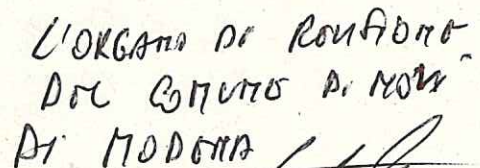 L'ORGANO DI REVISIONE
DEL COMUNE DI NOVI
DI MODENA